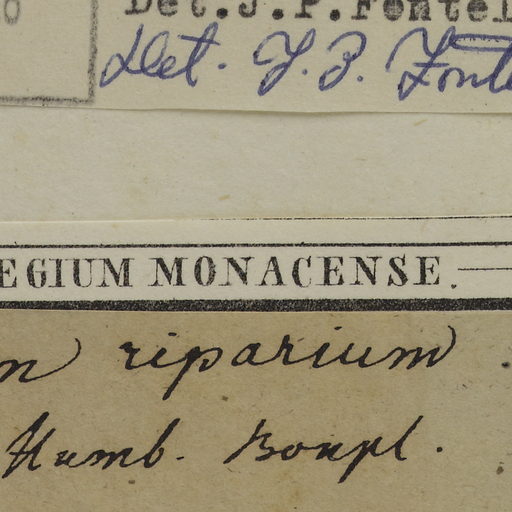 Det.J.P.Fontel
Det. J. P. Fonte
EGIUM MONACENSE.
riparium
Humb. Bonpl.